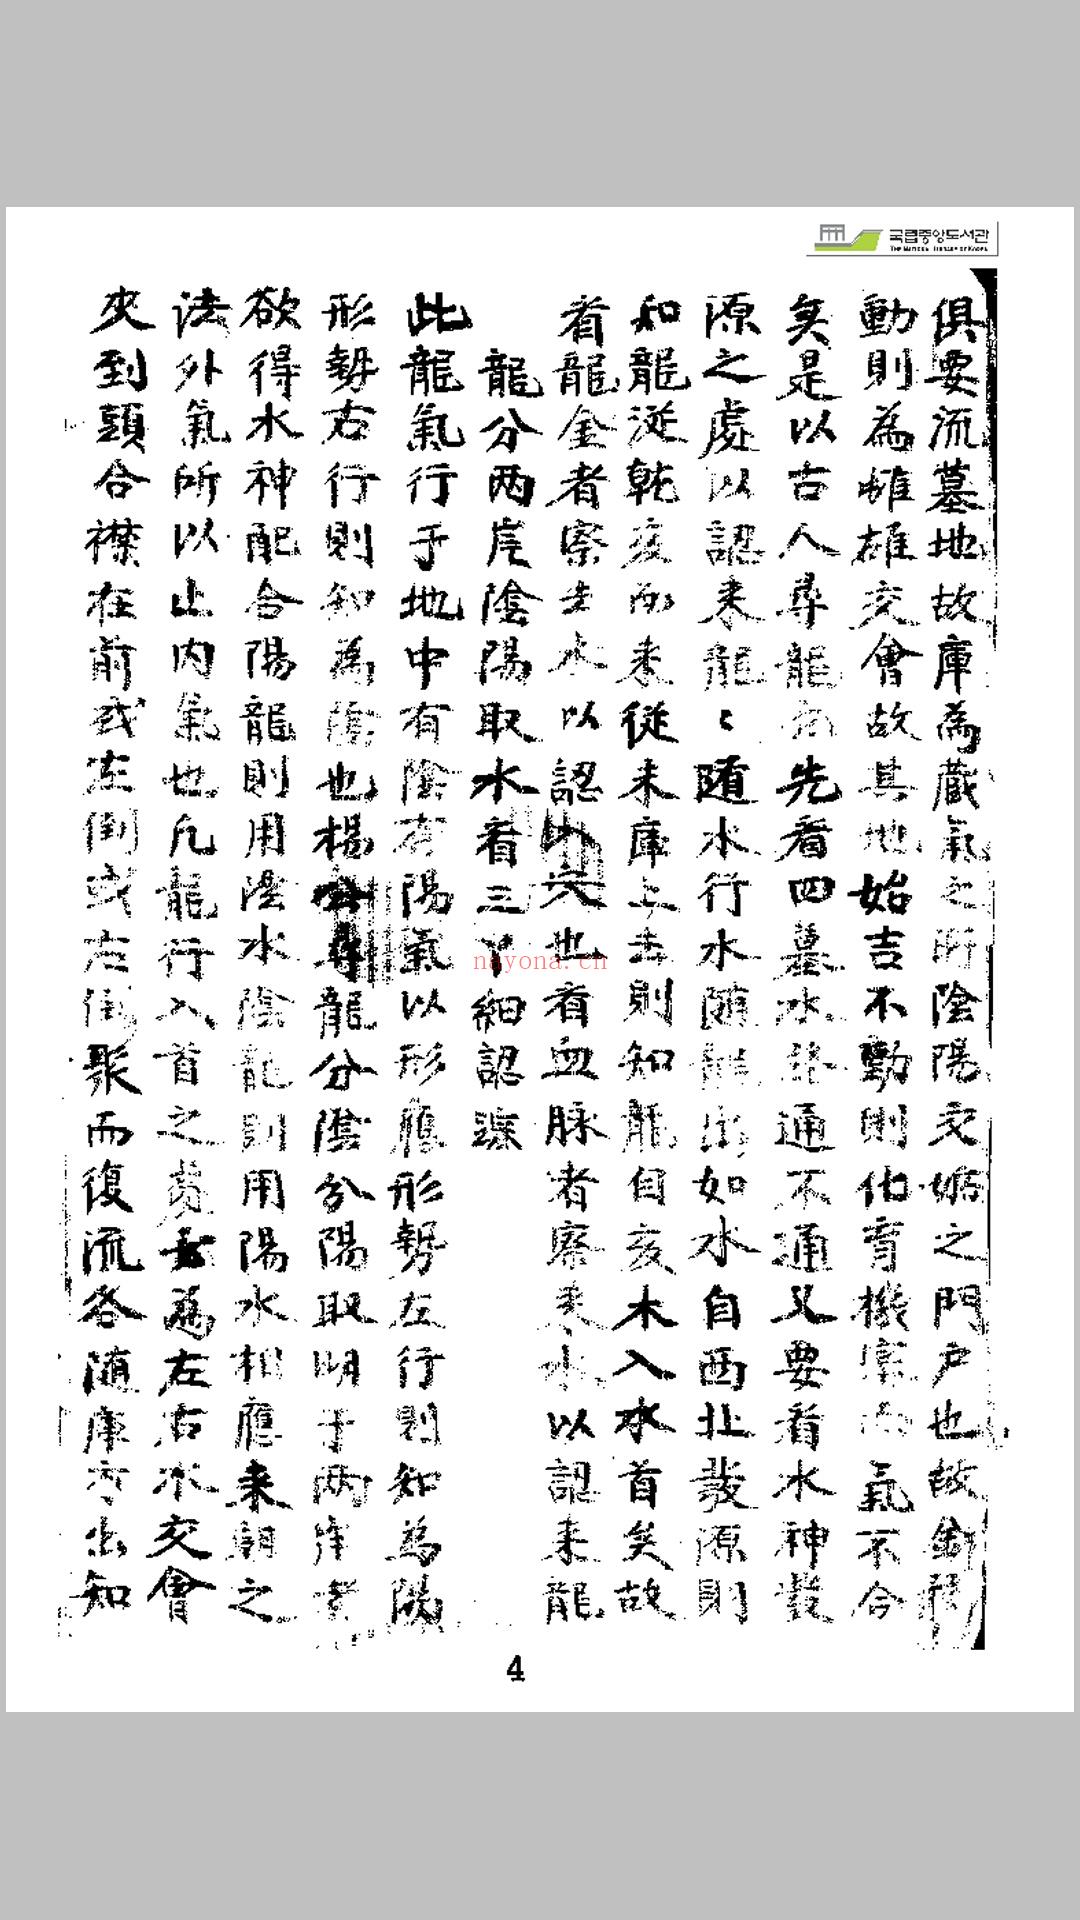 국립중앙도서관
THE NATIONAL LIBRARY OF KOREA
俱要流墓地故庫為藏氣之所陰陽交媾之門户也故
動則為雌雄交會故其地始吉不動則化育機 氣不合
矣是以古人尋龍 先看四墓水 通不通又要看水神發
源之處以認来龍〻随水行水随龍出如水自西北發源則
知龍從乾亥而来從未庫上去則知龍自亥木入水首矣故
看龍金者察去水以認 也看血脉者察来水以認来龍
龍分兩岸陰陽取水看三丫細認踪
此龍氣行于地中有陰有陽氣以形應形勢左行則知為陽
形勢右行則知為陰也楊公尋龍分陰分陽取 于两岸者
欲得水神配合陽龍則用陰水陰龍則用陽水相應来朝之
法外氣所以止内氣也凡龍行入首之 為左右水交會
夾到頭合襟在前或左倒或右倒聚而復流各随庫方出知
nayona.cn
4